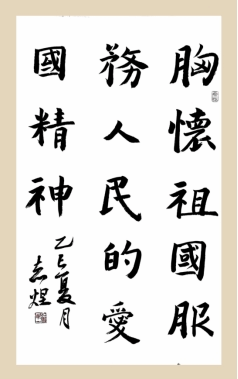 胸懷祖國服
務人民的愛
國精神
乙巳夏月
志煌